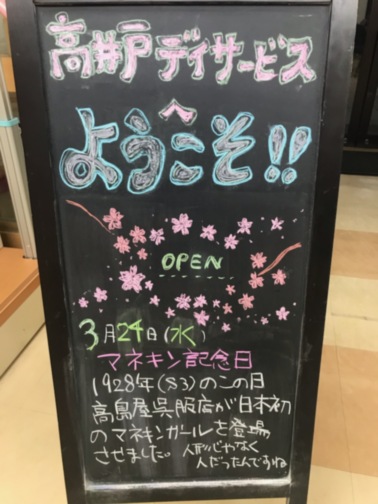 高井戸デイサービス
へ
ようこそ!!
OPEN
3月24日(水)
マネキン記念日
1928年(S3)のこの日
高島屋呉服店が日本初
のマネキンガールを登場
させました。人形じゃなく
人だったんですね